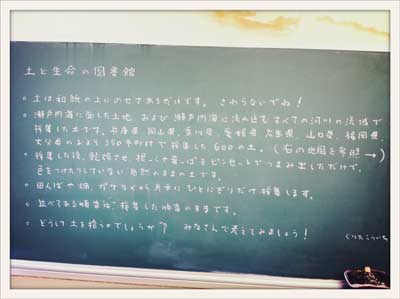 土と生命の図書館
○ 土は和紙の上にのせてあるだけです。 さわらないでね!
○ 瀬戸内海に面した土地、および瀬戸内海に流れ込むすべての河川の流域で
採集した土です。兵庫県、岡山県、香川県、愛媛県、広島県、山口県、福岡県、
大分県のおよそ350市町村で採集した600の土。(右の地図を参照→)
○ 採集した後、乾燥させ、根っこや葉っぱをピンセットでつまみ出しただけで、
色をつけたりしていない自然のままの土です。
○ 田んぼや畑、ガケなどから片手にひとにぎりだけ採集します。
○ 並べてある順番は、採集した順番のままです。
○ どうして土を拾うのでしょうか? みなさんで考えてみましょう!
くりたこういち